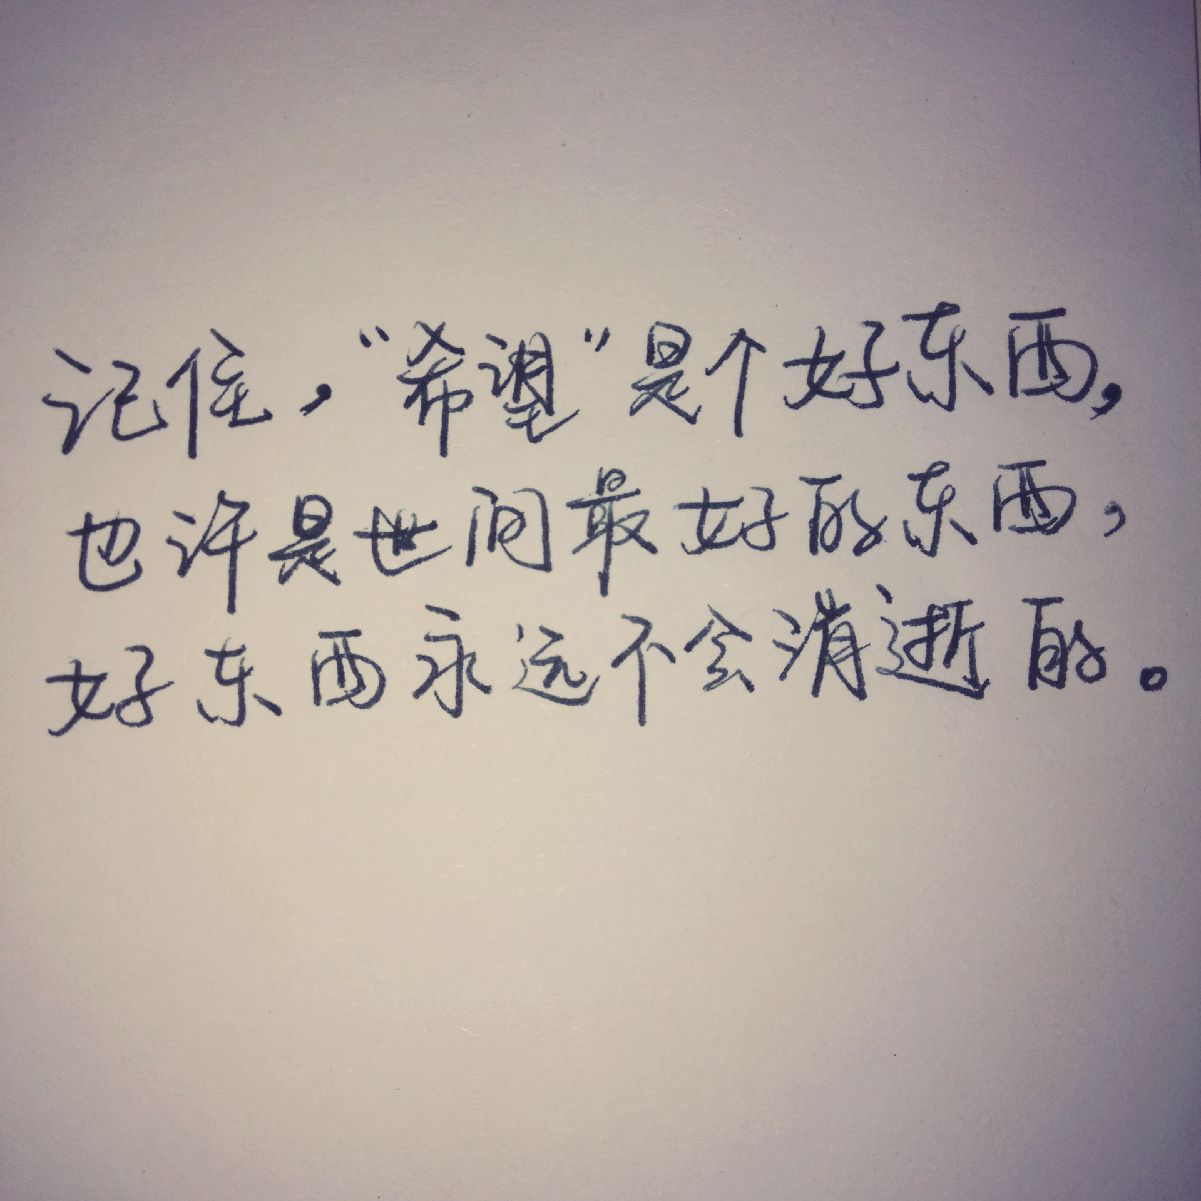 记住，“希望”是个好东西，
也许是世间最好的东西，
好东西永远不会消逝的。